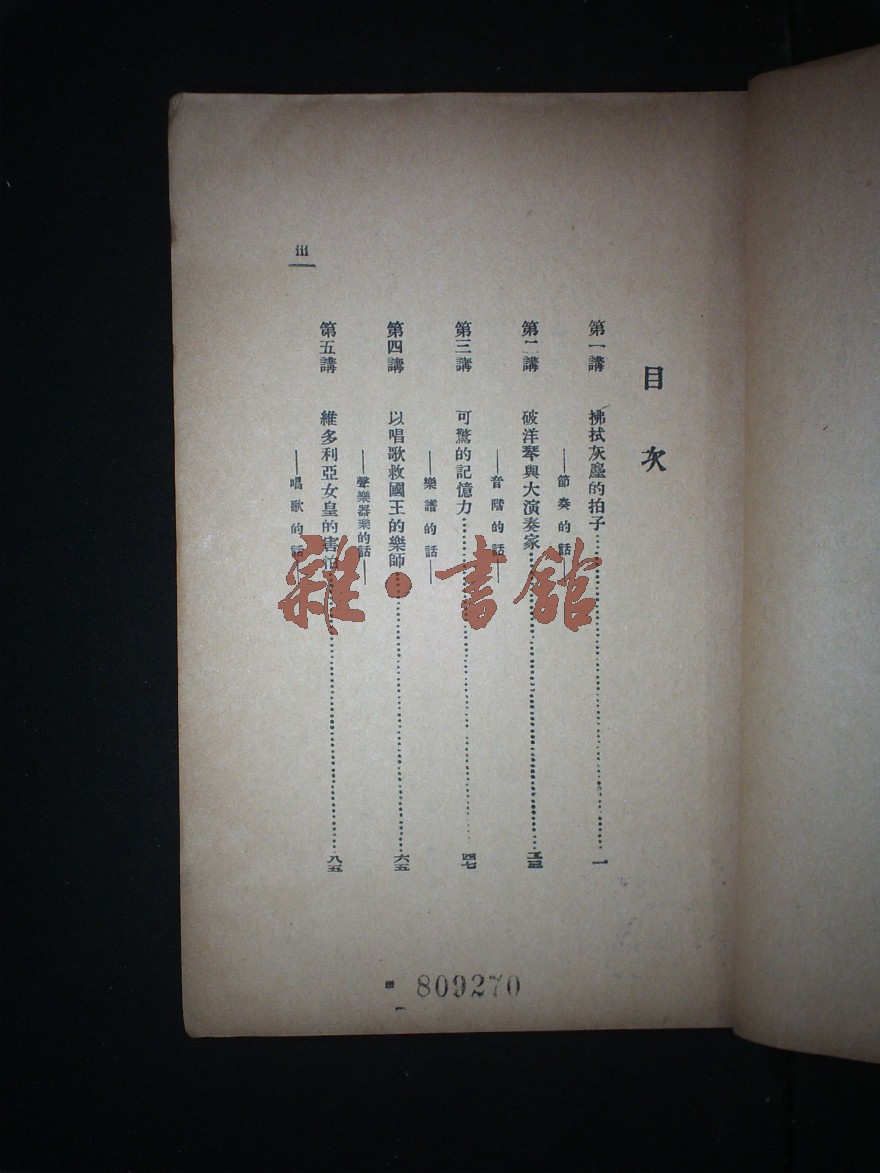 目次
第一講　拂拭灰塵的拍子……一
——節奏的話——
第二講　破洋琴與大演奏家……
——音階的話——
第三講　可驚的記憶力……四七
——樂譜的話——
第四講　以唱歌救國王的樂師……六五
——聲樂器樂的話——
第五講　維多利亞女皇的害怕……八五
——唱歌的話——
iii
雜·書館
809270